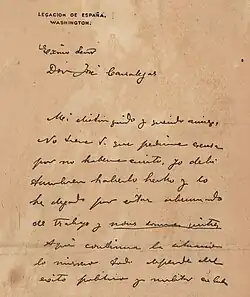 LEGACION DE ESPAÑA.
WASHINGTON.
Excmo Señor
Don José Canalejas
Mi distinguido y querido amigo:
No tiene V. que pedirme excusa
por no haberme escrito, yo debí
tambien haberlo hecho y lo
he dejado por estar abrumado
de trabajo y
Aqui continua la situacion
lo mismo todo depende del
exito politico y militar